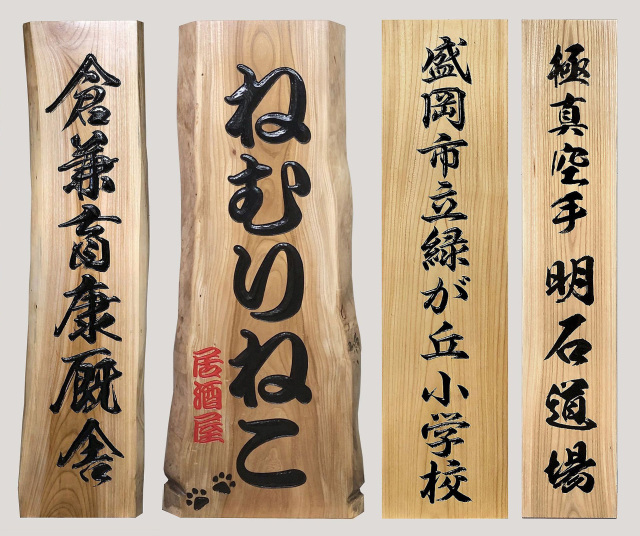 倉兼育康厩舎
ねむりねこ
居酒屋
盛岡市立緑が丘小学校
極真空手 明石道場